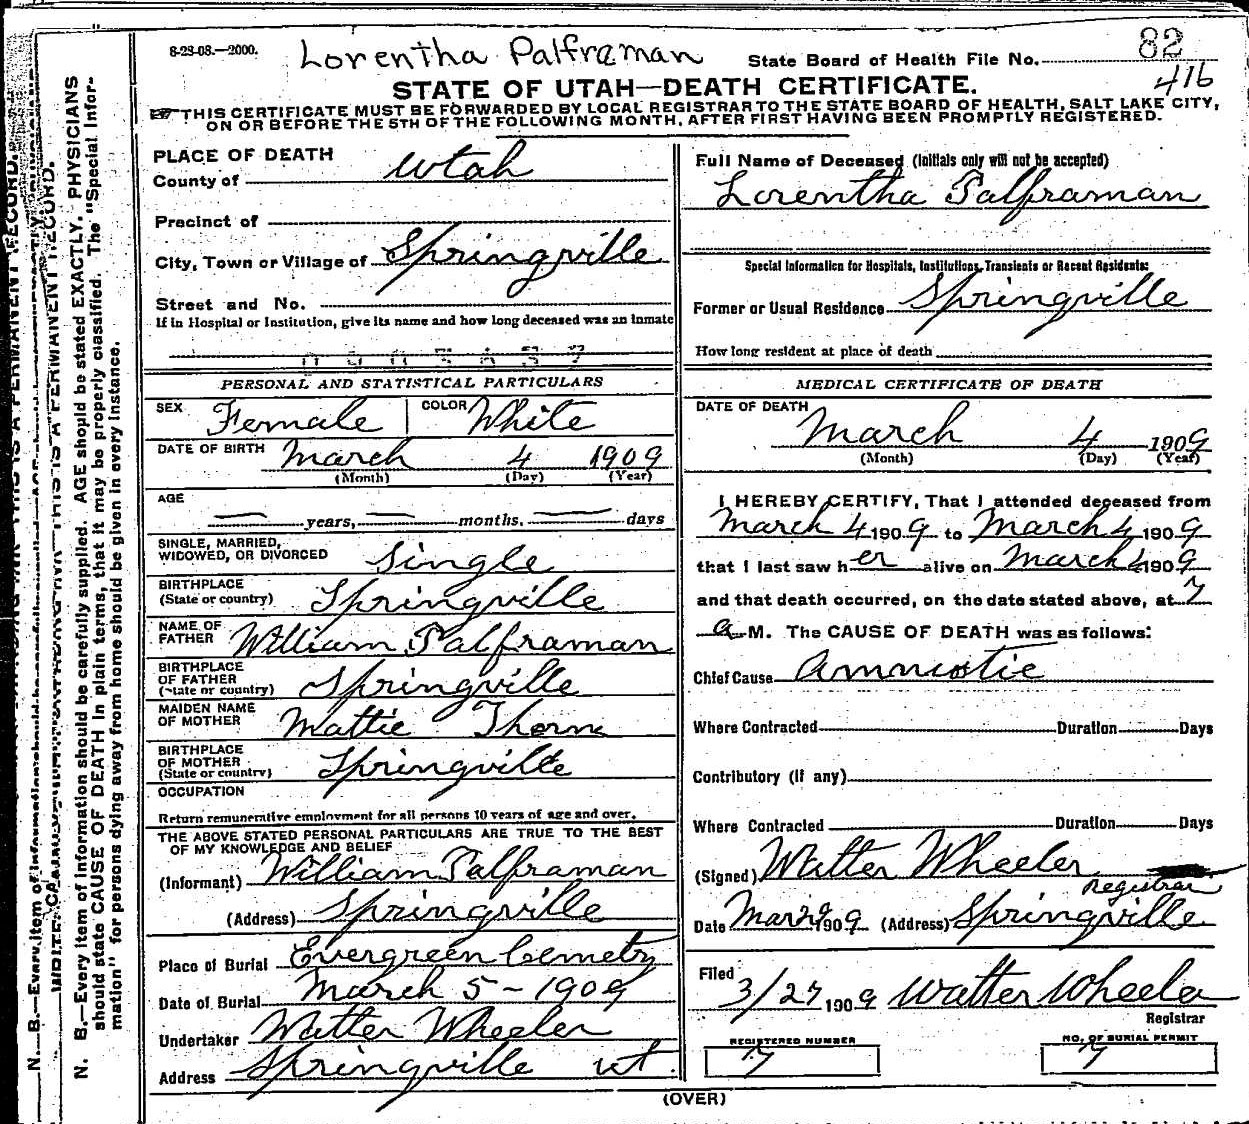 8-28-08.—2000.
Lorentha Palframan
State Board of Health File No. 82
416
STATE OF UTAH—DEATH CERTIFICATE.
THIS CERTIFICATE MUST BE FORWARDED BY LOCAL REGISTRAR TO THE STATE BOARD OF HEALTH, SALT LAKE CITY,
ON OR BEFORE THE 5TH OF THE FOLLOWING MONTH, AFTER FIRST HAVING BEEN PROMPTLY REGISTERED.
PLACE OF DEATH
County of Utah
Precinct of
City, Town or Village of Springville
Street and No.
If in Hospital or Institution, give its name and how long deceased was an inmate
PERSONAL AND STATISTICAL PARTICULARS
SEX Female COLOR White
DATE OF BIRTH March 4 1909
(Month) (Day) (Year)
AGE
— years, — months, — days
SINGLE, MARRIED,
WIDOWED, OR DIVORCED Single
BIRTHPLACE
(State or country) Springville
NAME OF
FATHER William Palframan
BIRTHPLACE
OF FATHER
(State or country) Springville
MAIDEN NAME
OF MOTHER Mattie Thorn
BIRTHPLACE
OF MOTHER
(State or country) Springville
OCCUPATION
Return remunerative employment for all persons 10 years of age and over.
THE ABOVE STATED PERSONAL PARTICULARS ARE TRUE TO THE BEST
OF MY KNOWLEDGE AND BELIEF
(Informant) William Palframan
(Address) Springville
Place of Burial Evergreen Cemetry
Date of Burial March 5 - 1909
Undertaker Walter Wheeler
Address Springville ut.
Full Name of Deceased (Initials only will not be accepted)
Lorentha Palframan
Special Information for Hospitals, Institutions, Transients or Recent Residents:
Former or Usual Residence Springville
How long resident at place of death
MEDICAL CERTIFICATE OF DEATH
DATE OF DEATH
March 4 1909
(Month) (Day) (Year)
I HEREBY CERTIFY, That I attended deceased from
March 4 1909 to March 4 1909
that I last saw her alive on March 4 1909
and that death occurred, on the date stated above, at 7
a M. The CAUSE OF DEATH was as follows:
Chief Cause
Where Contracted Duration Days
Contributory (if any)
Where Contracted Duration Days
(Signed) Walter Wheeler
Registrar
Date Mar 1909 (Address) Springville
Filed
3/27 1909 Walter Wheeler
Registrar
REGISTERED NUMBER
7
NO. OF BURIAL PERMIT
7
(OVER)
N. B.—Every item of information should be carefully supplied. AGE should be stated EXACTLY. PHYSICIANS
should state CAUSE OF DEATH in plain terms, that it may be properly classified. The "Special Infor-
mation" for persons dying away from home should be given in every instance.